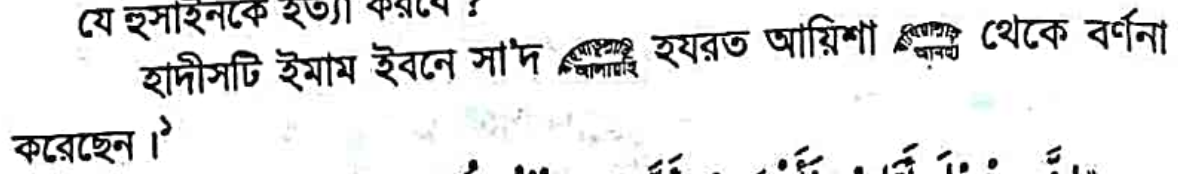 যে হুসাইনকে হত্যা করবে ?
হাদীসটি ইমাম ইবনে সা'দ হযরত আয়িশা থেকে বর্ণনা
করেছেন।১